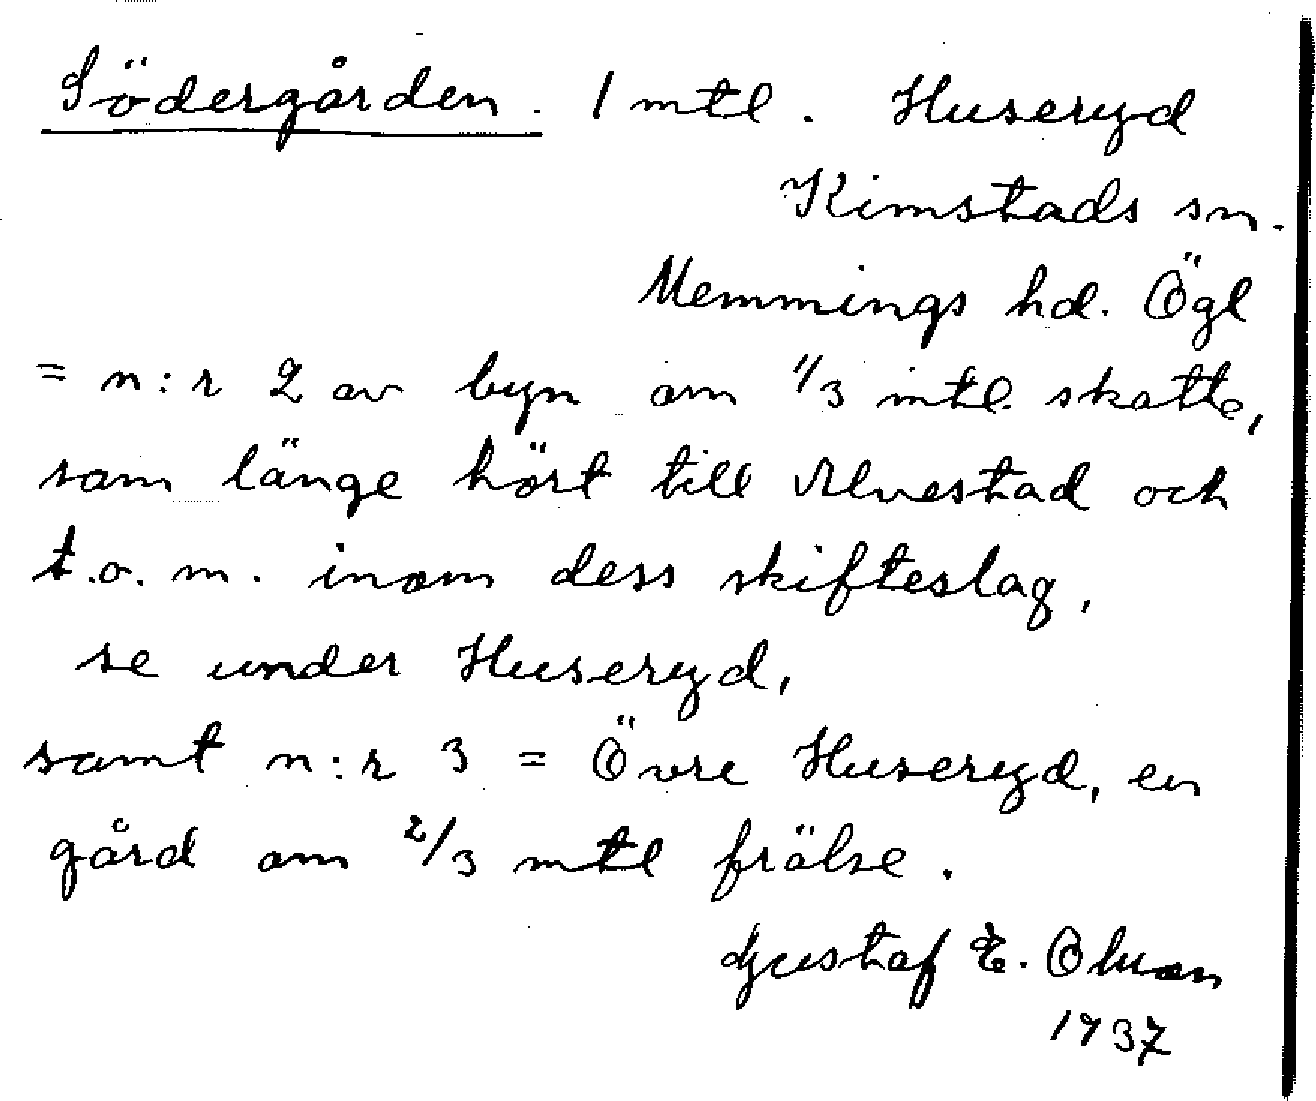 Södergården. 1 mtl. Huseryd
Kimstads sn.
Memmings hd. Ögl
= n:r 2 av byn om 1/3 mtl. skatte,
som länge hört till Alvestad och
t.o.m. inom dess skifteslag,
se under Huseryd,
samt n:r 3 = Övre Huseryd, en
gård om 2/3 mtl frälse.
Gustaf E.
1937